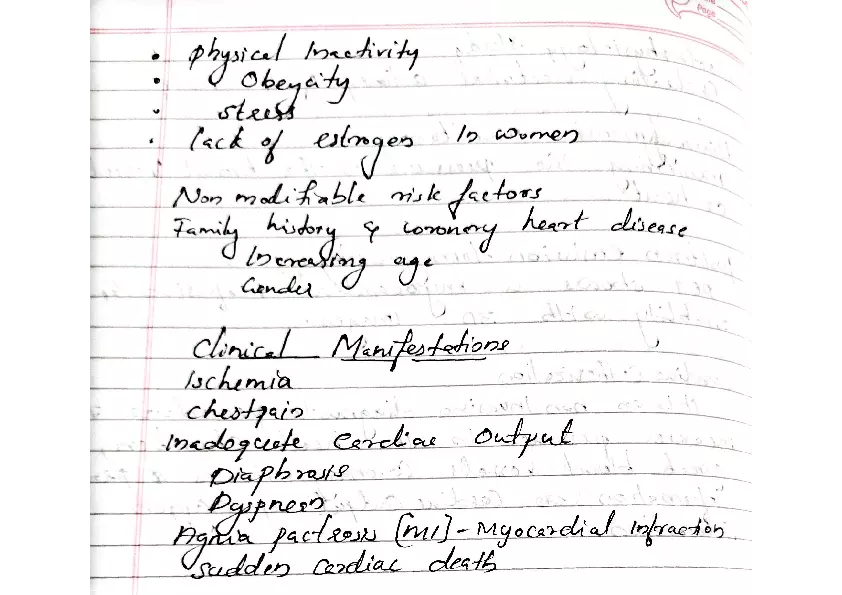 Page
• Physical Inactivity
• Obeycity
• Stress
• lack of estrogen In women
Non modifiable risk factors
Family history & coronery heart disease
Increasing age
Gender
Clinical Manifestations
Ischemia
Chestpain
Inadequate Cardiac Output
Diaphrosis
Dyspnesn
Agnia pacteosis [MI] - Myocardial Infraction
Sudden Cardiac death